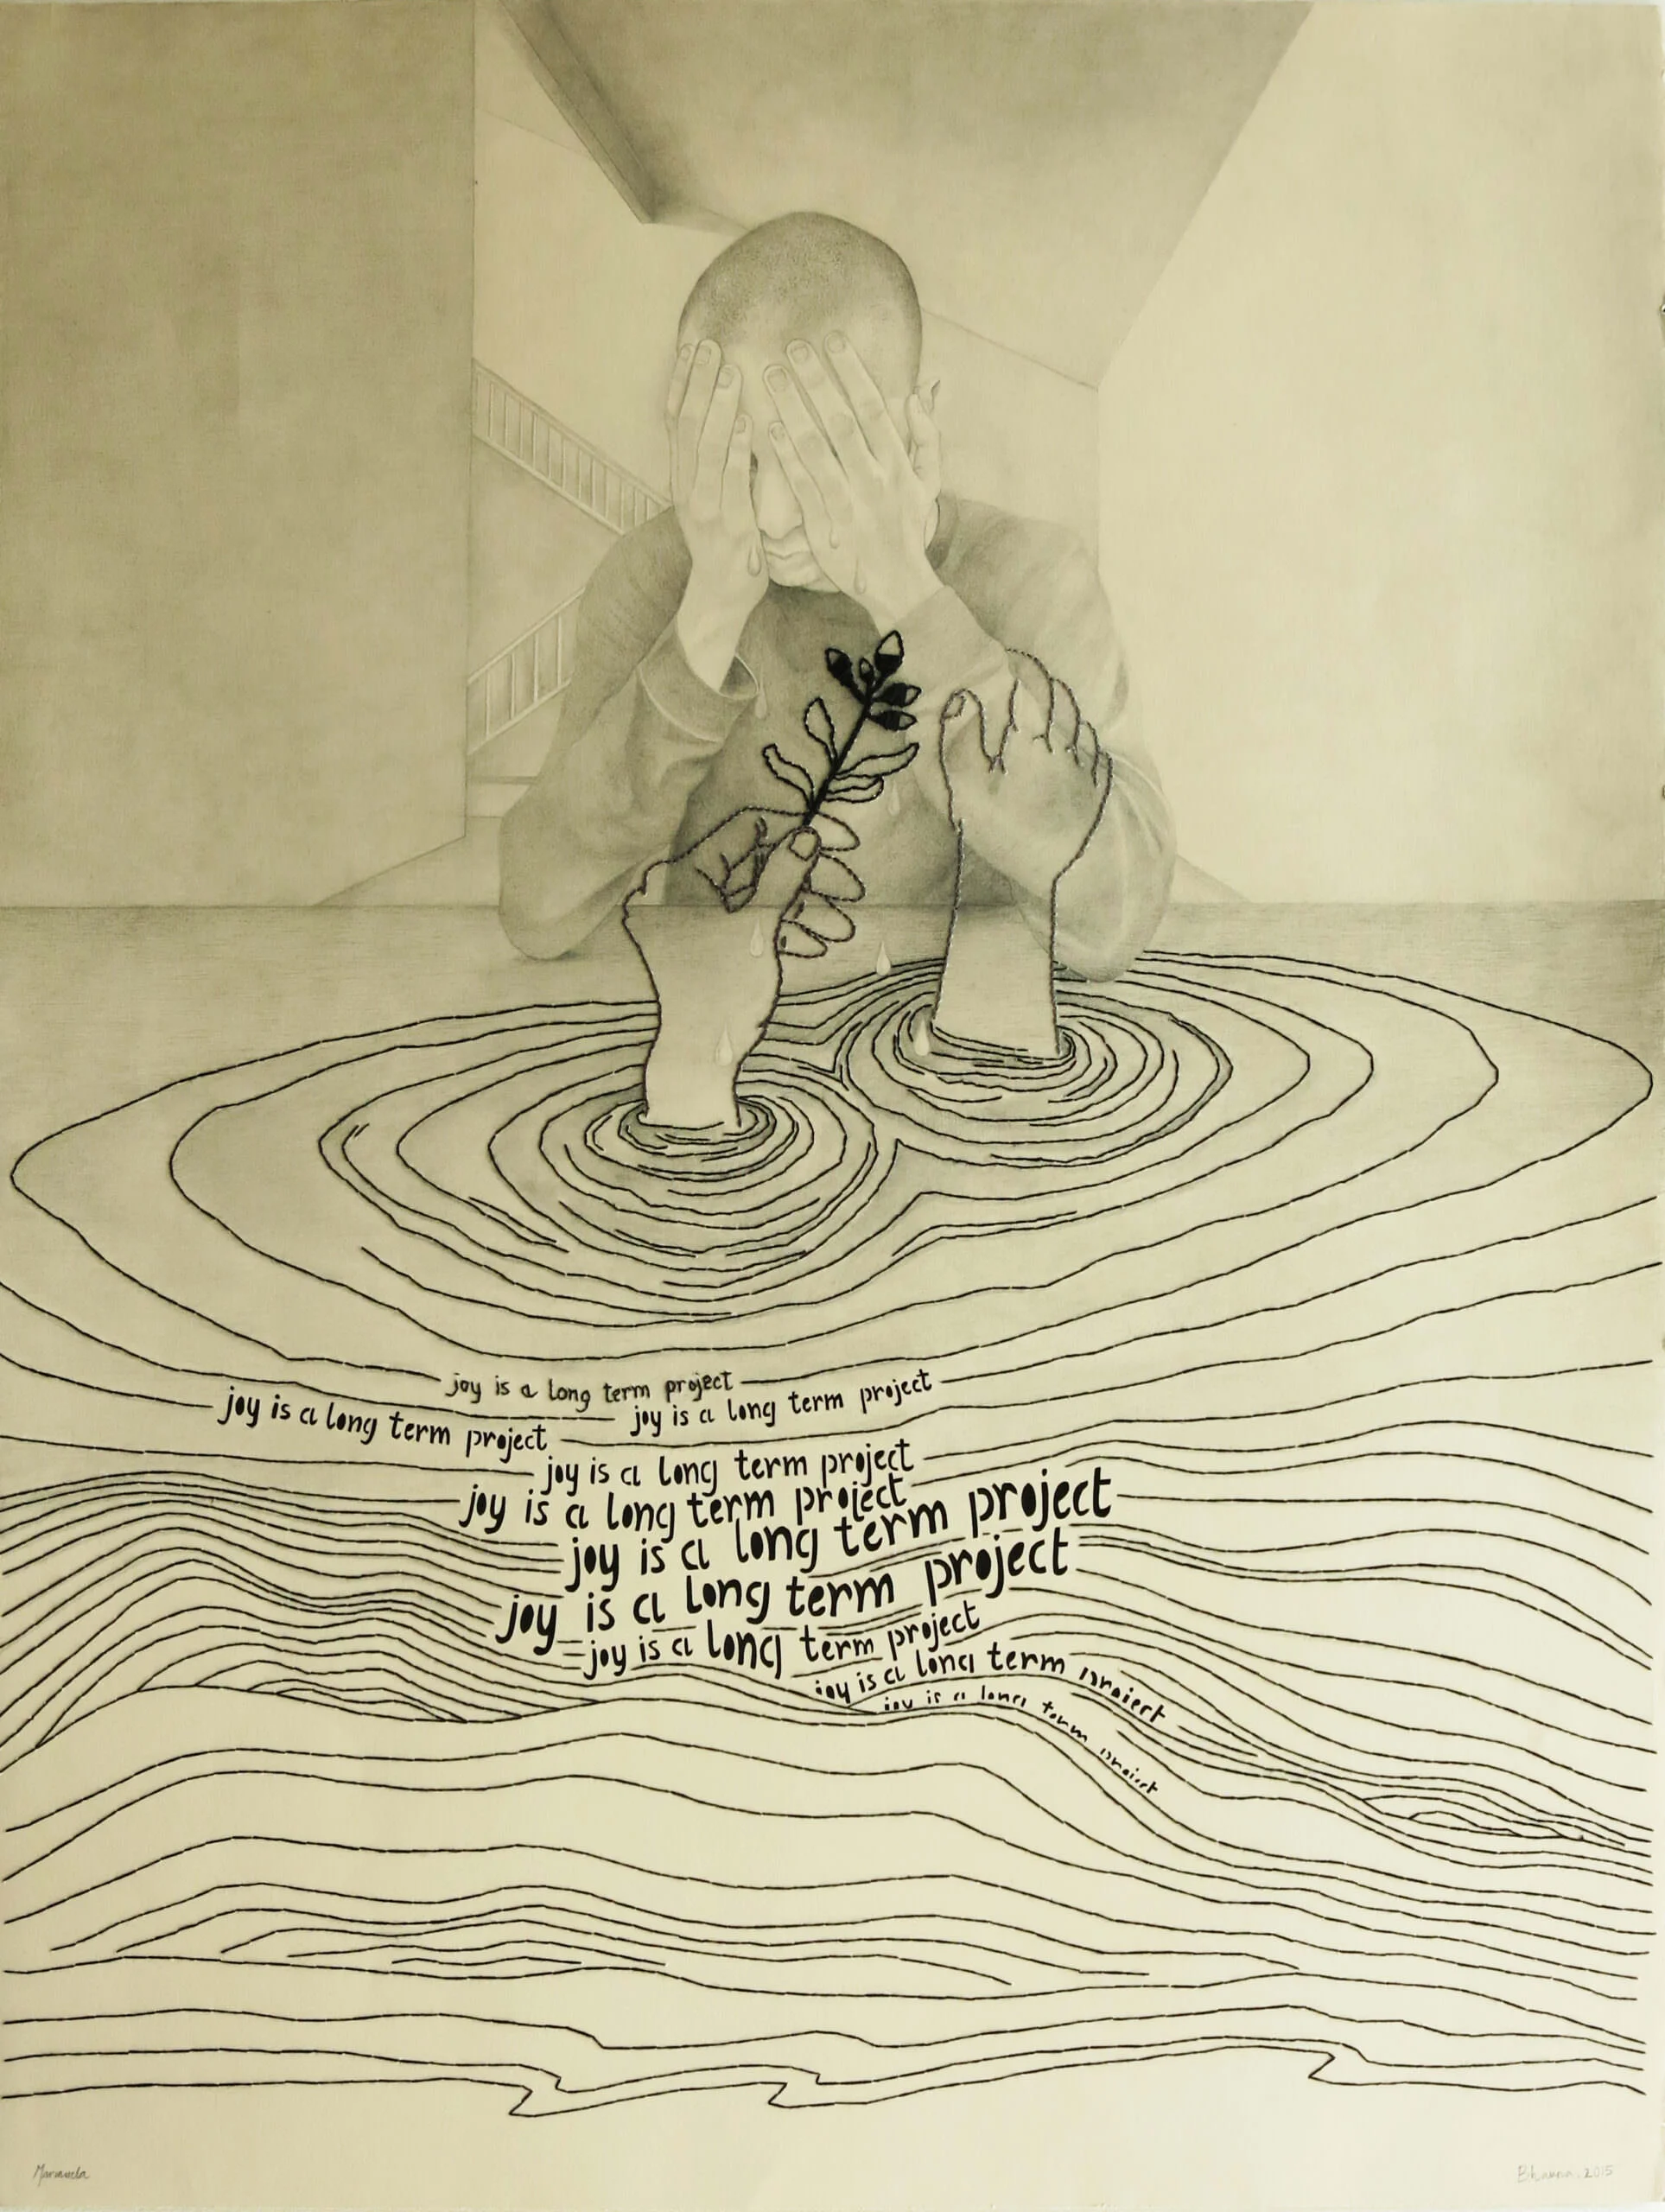 joy is a long term project
joy is a long term project
joy is a long term project
joy is a long term project
joy is a long term project
joy is a long term project
joy is a long term project
joy is a long term project
joy is a long term project
joy is a long term project
2015